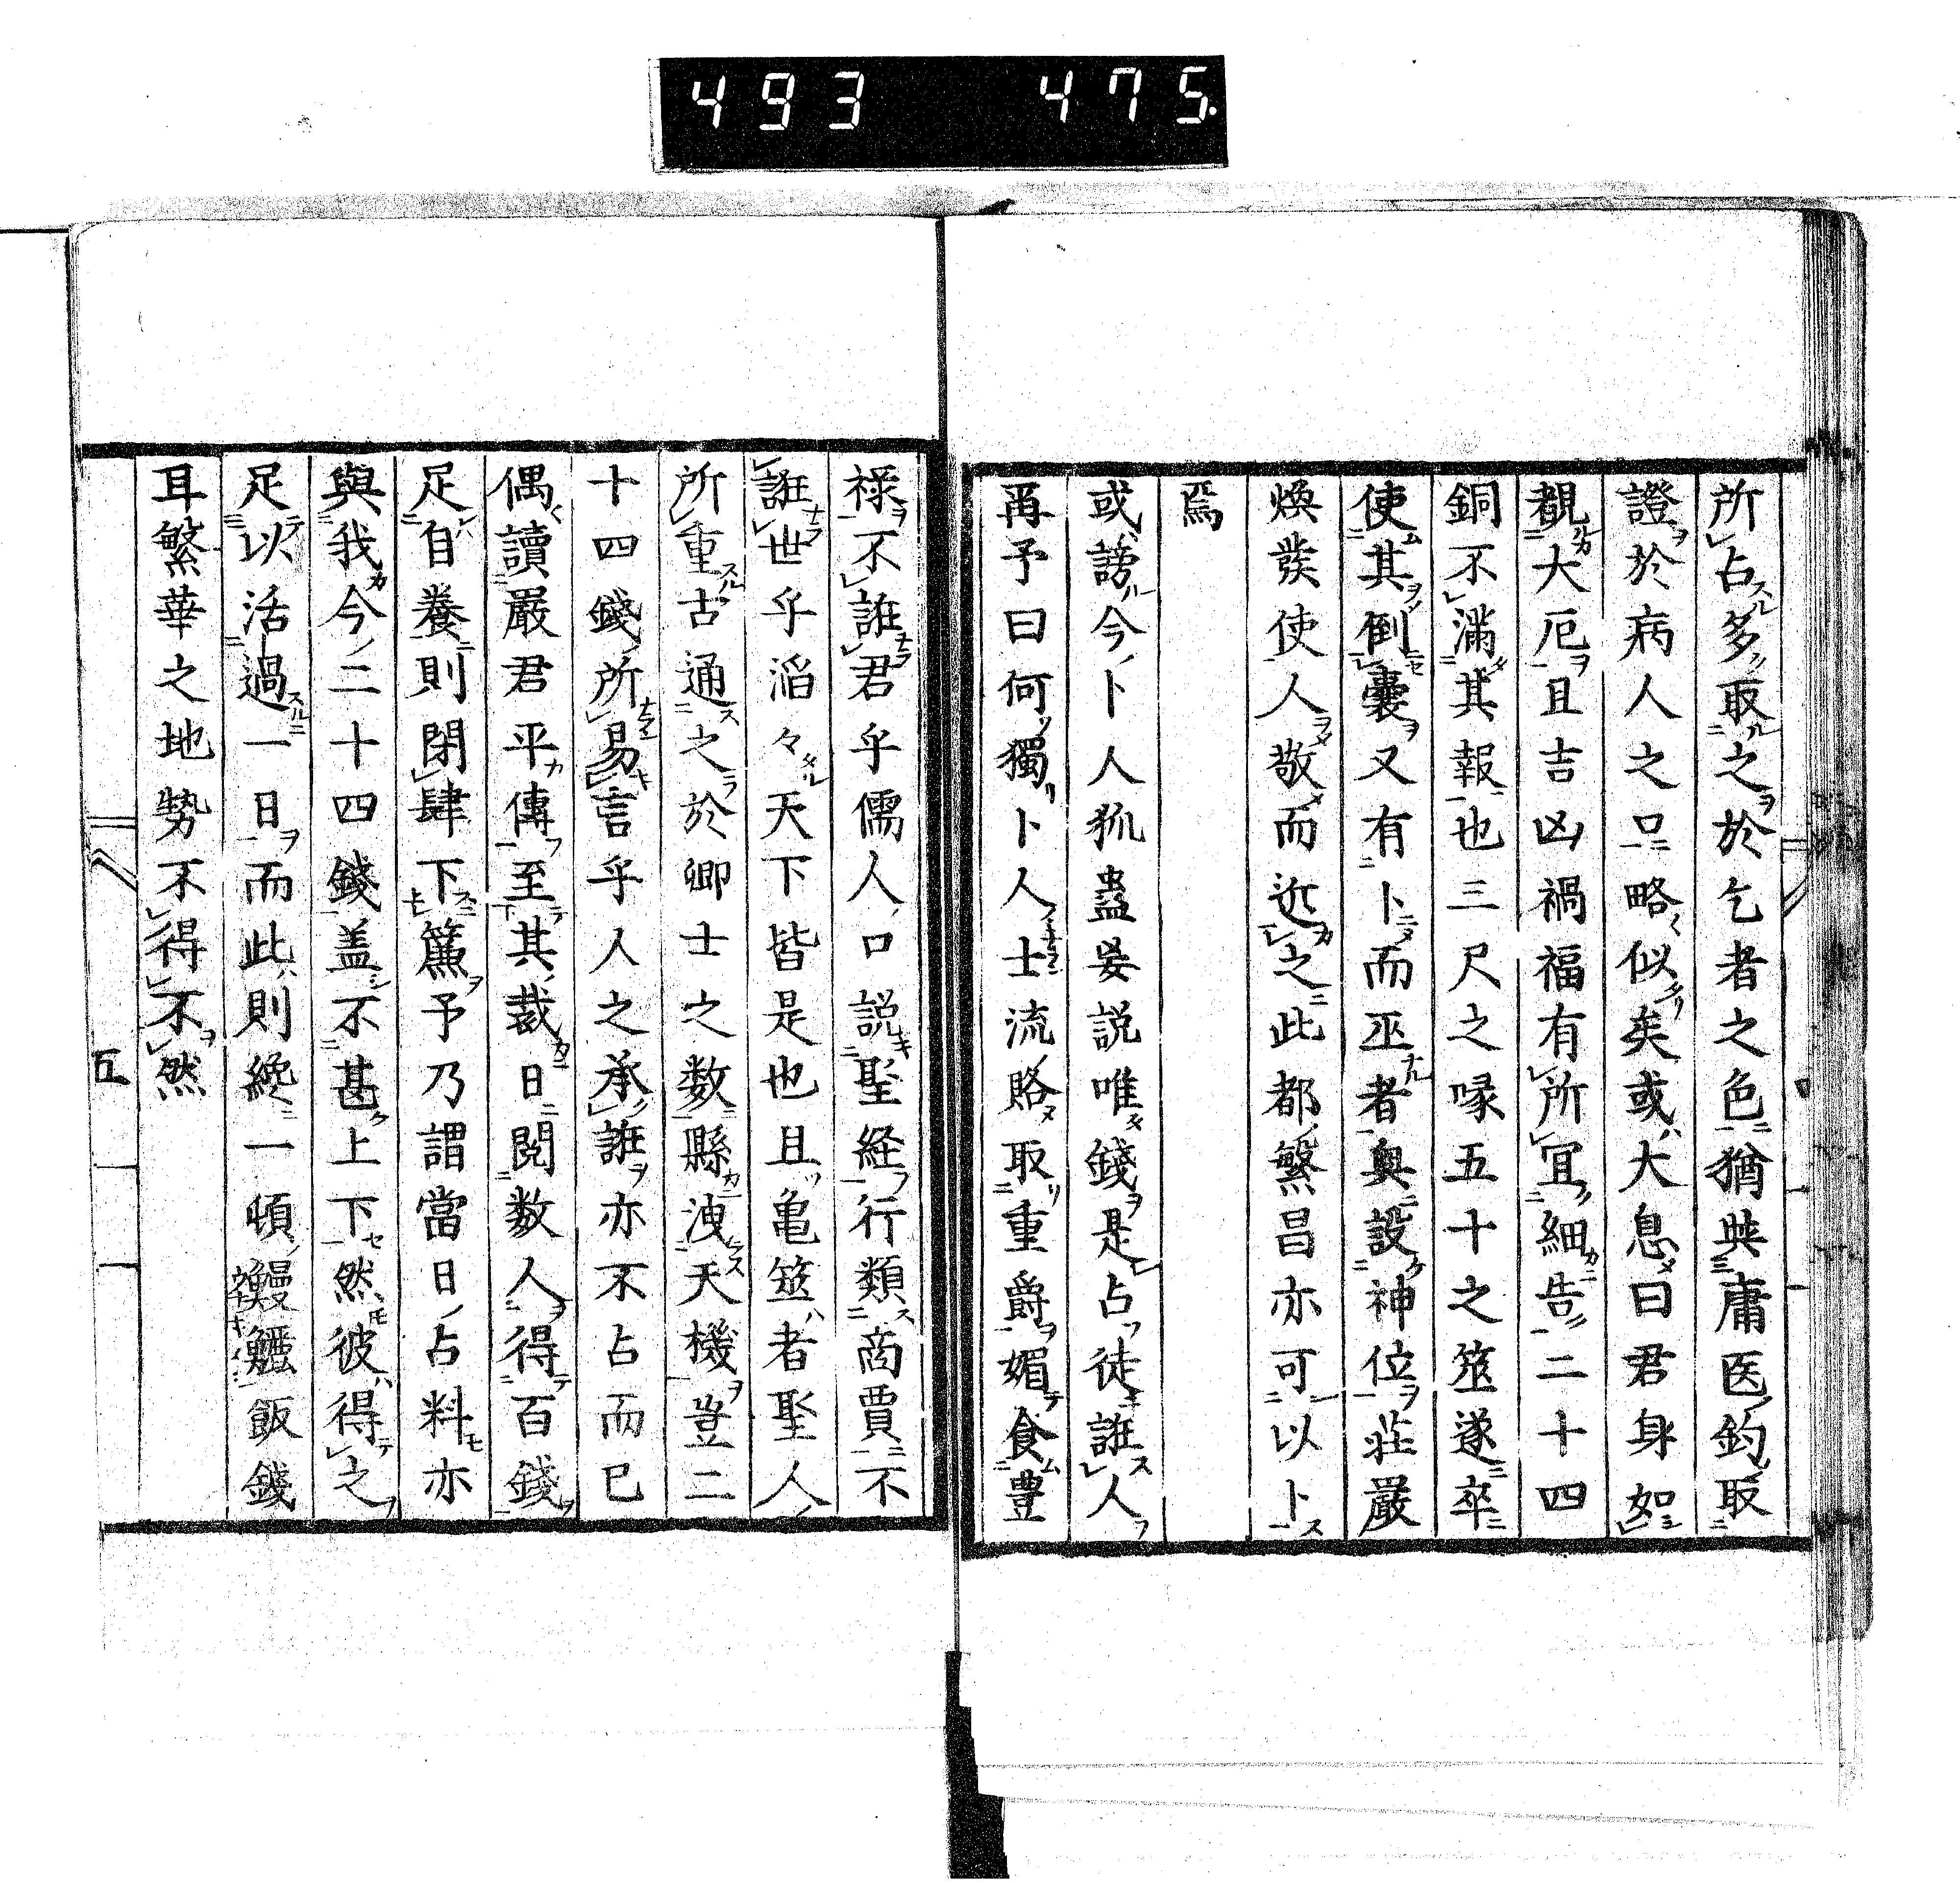 493 475.
所占多取之於乞者之色猶典庸医鈞取
證於病人之口略似矣或大息曰君身如
覩大厄且吉凶禍福有所宜細告二十四
銅不滿其報也三尺之喙五十之筮遂卒
使其倒囊又有卜而巫者奥設神位荘嚴
煥発使人敬而近之此都繁昌亦可以卜
焉
或謗今卜人狐蠱妄説唯錢是占徒誑人
再予曰何獨卜人士流賂取重爵媚食豊
禄不誑君乎儒人口説聖経行類商賈不
誑世乎滔々天下皆是也且亀筮者聖人
所重古通之於卿士之数縣洩天機豈二
十四錢所易言乎人之承誑亦不占而已
偶讀嚴君平傳至其裁日閲数人得百錢
足自養則閉肆下簾予乃謂當日占料亦
與我今二十四錢盖不甚上下然彼得之
足以活過一日而此則纔一頓鰻鱺飯錢
耳繁華之地勢不得不然
五